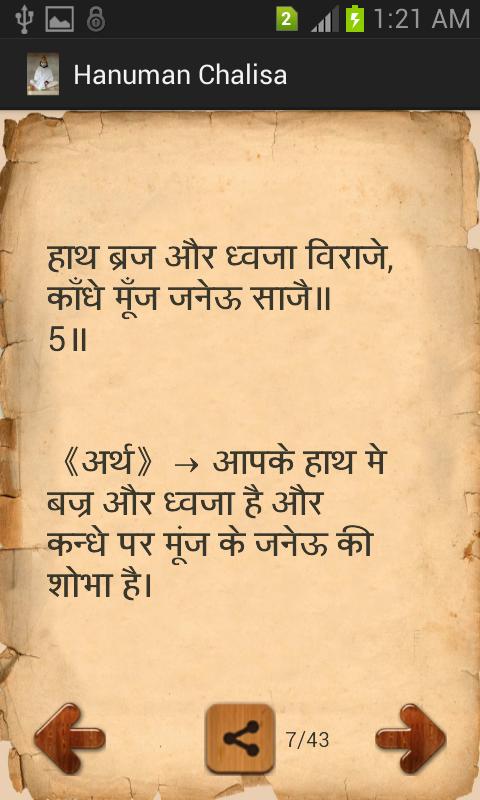 2 1:21 AM
Hanuman Chalisa
हाथ ब्रज और ध्वजा विराजे,
काँधे मूँज जनेऊ साजै॥
5॥
《अर्थ》 → आपके हाथ मे
बज्र और ध्वजा है और
कन्धे पर मूंज के जनेऊ की
शोभा है।
7/43